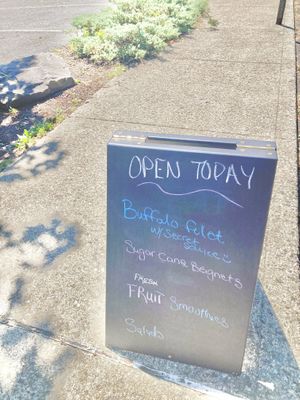 OPEN TODAY
Buffalo filet
w/ Secret
Sauce
Sugar Cane Beignets
FRESH
FRUIT Smoothies
Salads